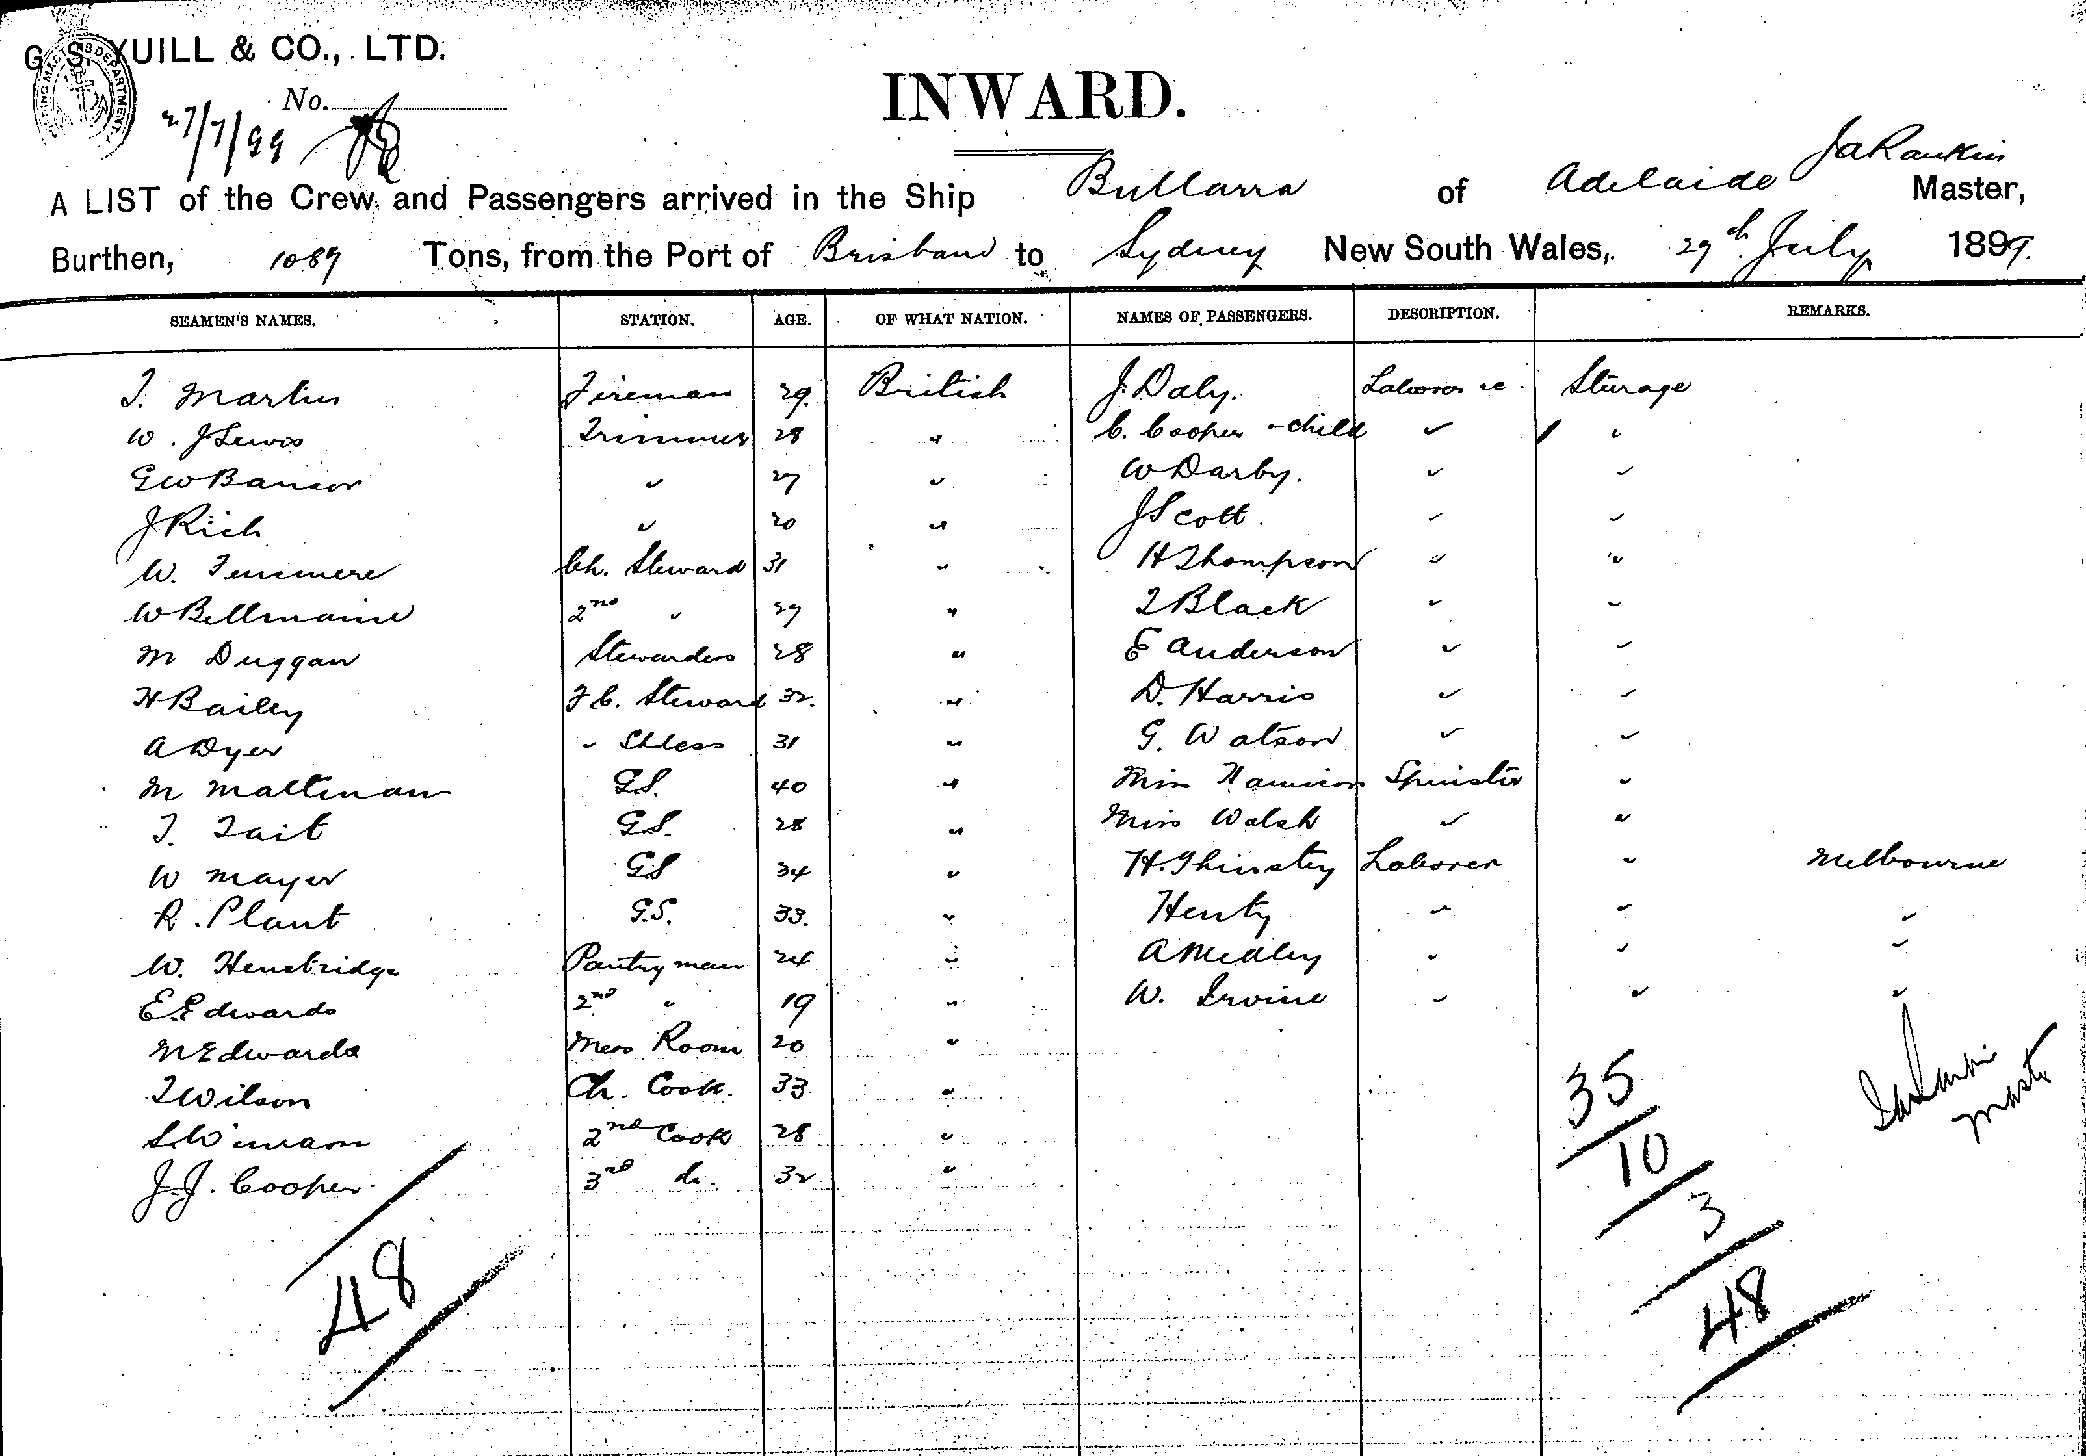 G. S. YUILL & CO., LTD.
No.
27/7/99
INWARD.
JaRankin
A LIST of the Crew and Passengers arrived in the Ship Bullarra of Adelaide Master,
Burthen, 1089 Tons, from the Port of Brisbane to Sydney New South Wales, 29th July 1899.
SEAMEN'S NAMES. STATION. AGE. OF WHAT NATION. NAMES OF PASSENGERS. DESCRIPTION. REMARKS.
T. Martin Fireman 29. British J. Daly. Laborer &c. Sturage
W. J Lewis Trimmer 28 " C. Cooper - child " "
G W " 27 " W Darby. " "
J Rich " 20 " J Scott. " "
W. Ch. Steward 31 " H Thompson " "
W Bellmaine 2nd " 27 " T Black " "
M Duggan Stewardess 28 " E Anderson " "
H Bailey F C. Steward 32. " D. Harris " "
A Dyer " Stdess 31 " G. Watson " "
M Maltman G S. 40 " Miss Spinster "
T. Tait G S. 28 " Miss Walsh " "
W Mayer G S 34 " H. Laborer " Melbourne
R. Plant G.S. 33. " Henty " " "
W. Hensbridge Pantry man 24 " A Medley " " "
E. Edwards 2nd " 19 " W. Irvine " " "
N Edwards Mess Room 20 "
T Wilson Ch. Cook. 33 "
2nd Cook 28 "
J. J. Cooper. 3rd do. 32 "
35
10
3
48
JaRankin
Master
48